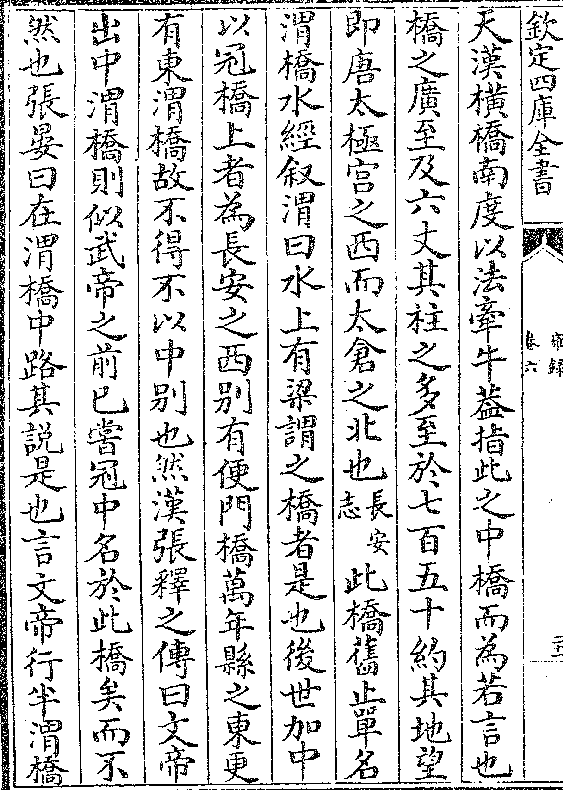 欽定四庫全書
雍録
卷六
五
天漢橫橋南度以法牽牛葢指此之中橋而為若言也
橋之廣至及六丈其柱之多至於七百五十約其地望
即唐太極宫之西而太倉之北也長安志此橋舊止單名
渭橋水經叙渭曰水上有梁謂之橋者是也後世加中
以冠橋上者為長安之西别有便門橋萬年縣之東更
有東渭橋故不得不以中别也然漢張釋之傳曰文帝
出中渭橋則似武帝之前已嘗冠中名於此橋矣而不
然也張晏曰在渭橋中路其説是也言文帝行半渭橋